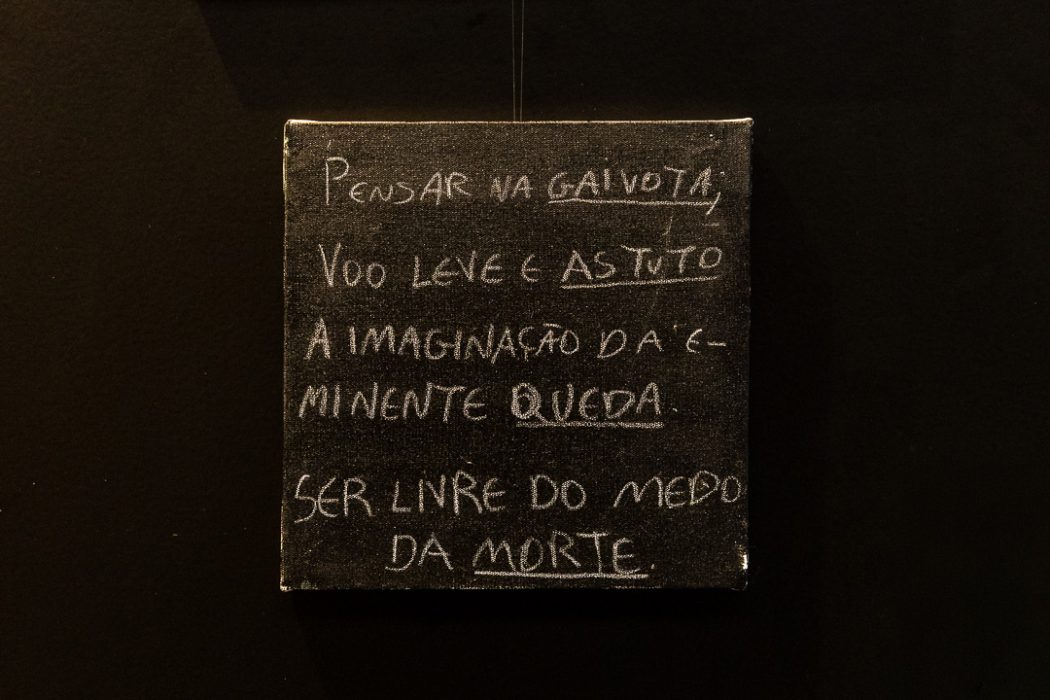 PENSAR NA GAIVOTA;
VOO LEVE E ASTUTO
A IMAGINAÇÃO DA E-
MINENTE QUEDA.
SER LIVRE DO MEDO
DA MORTE.